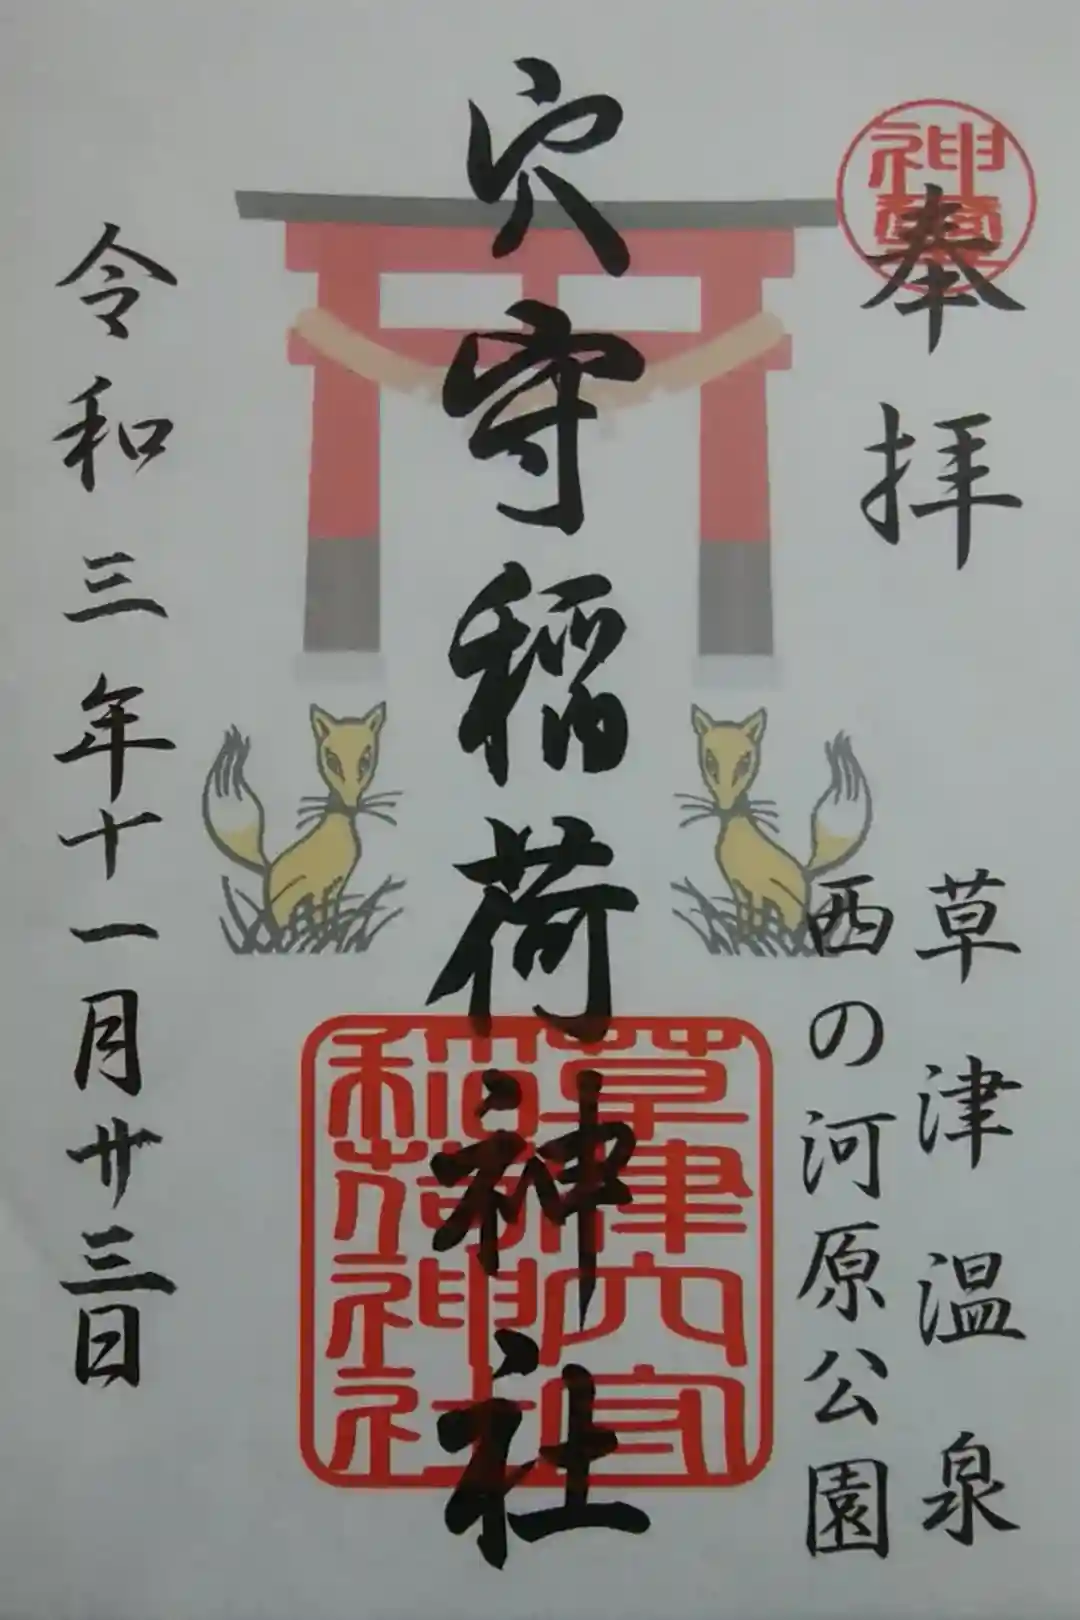 奉拝
草津温泉
西の河原公園
穴守稲荷神社
草津穴守
稲荷神社
令和三年十一月廿三日